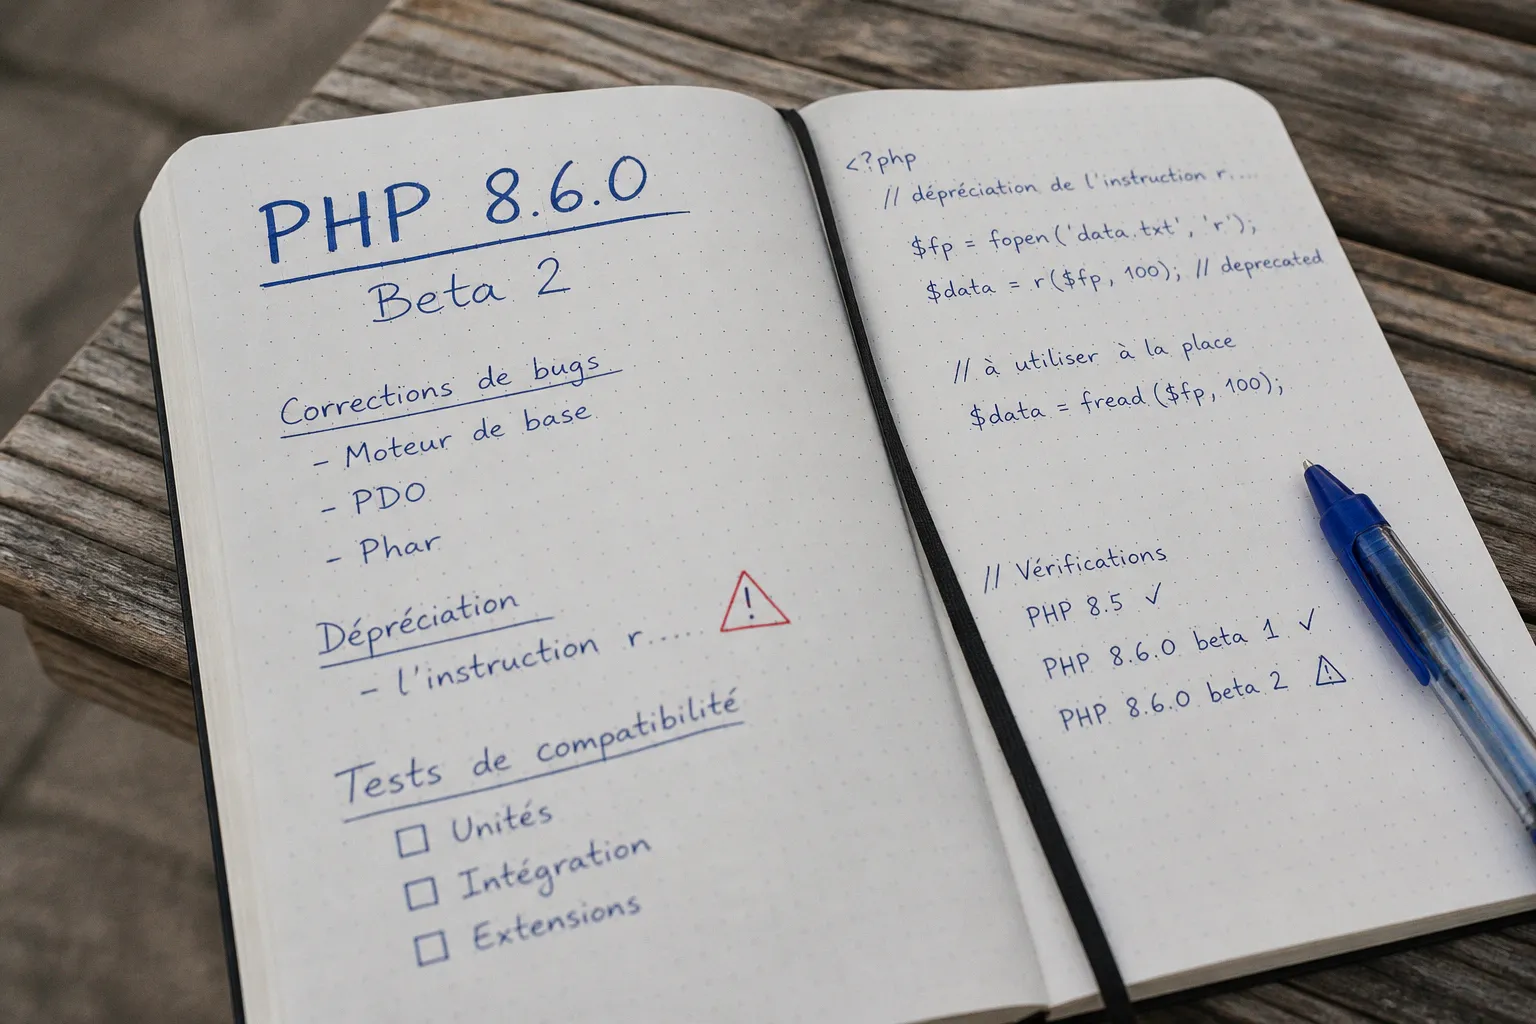 PHP 8.6.0
Beta 2
Corrections de bugs
- Moteur de base
- PDO
- Phar
Dépréciation
- l'instruction r.....
!
Tests de compatibilité
☐ Unités
☐ Intégration
☐ Extensions
<?php
// dépréciation de l'instruction r.....
$fp = fopen('data.txt', 'r');
$data = r($fp, 100); // deprecated
// à utiliser à la place
$data = fread($fp, 100);
// Vérifications
PHP 8.5 ✓
PHP 8.6.0 beta 1 ✓
PHP 8.6.0 beta 2 ⚠